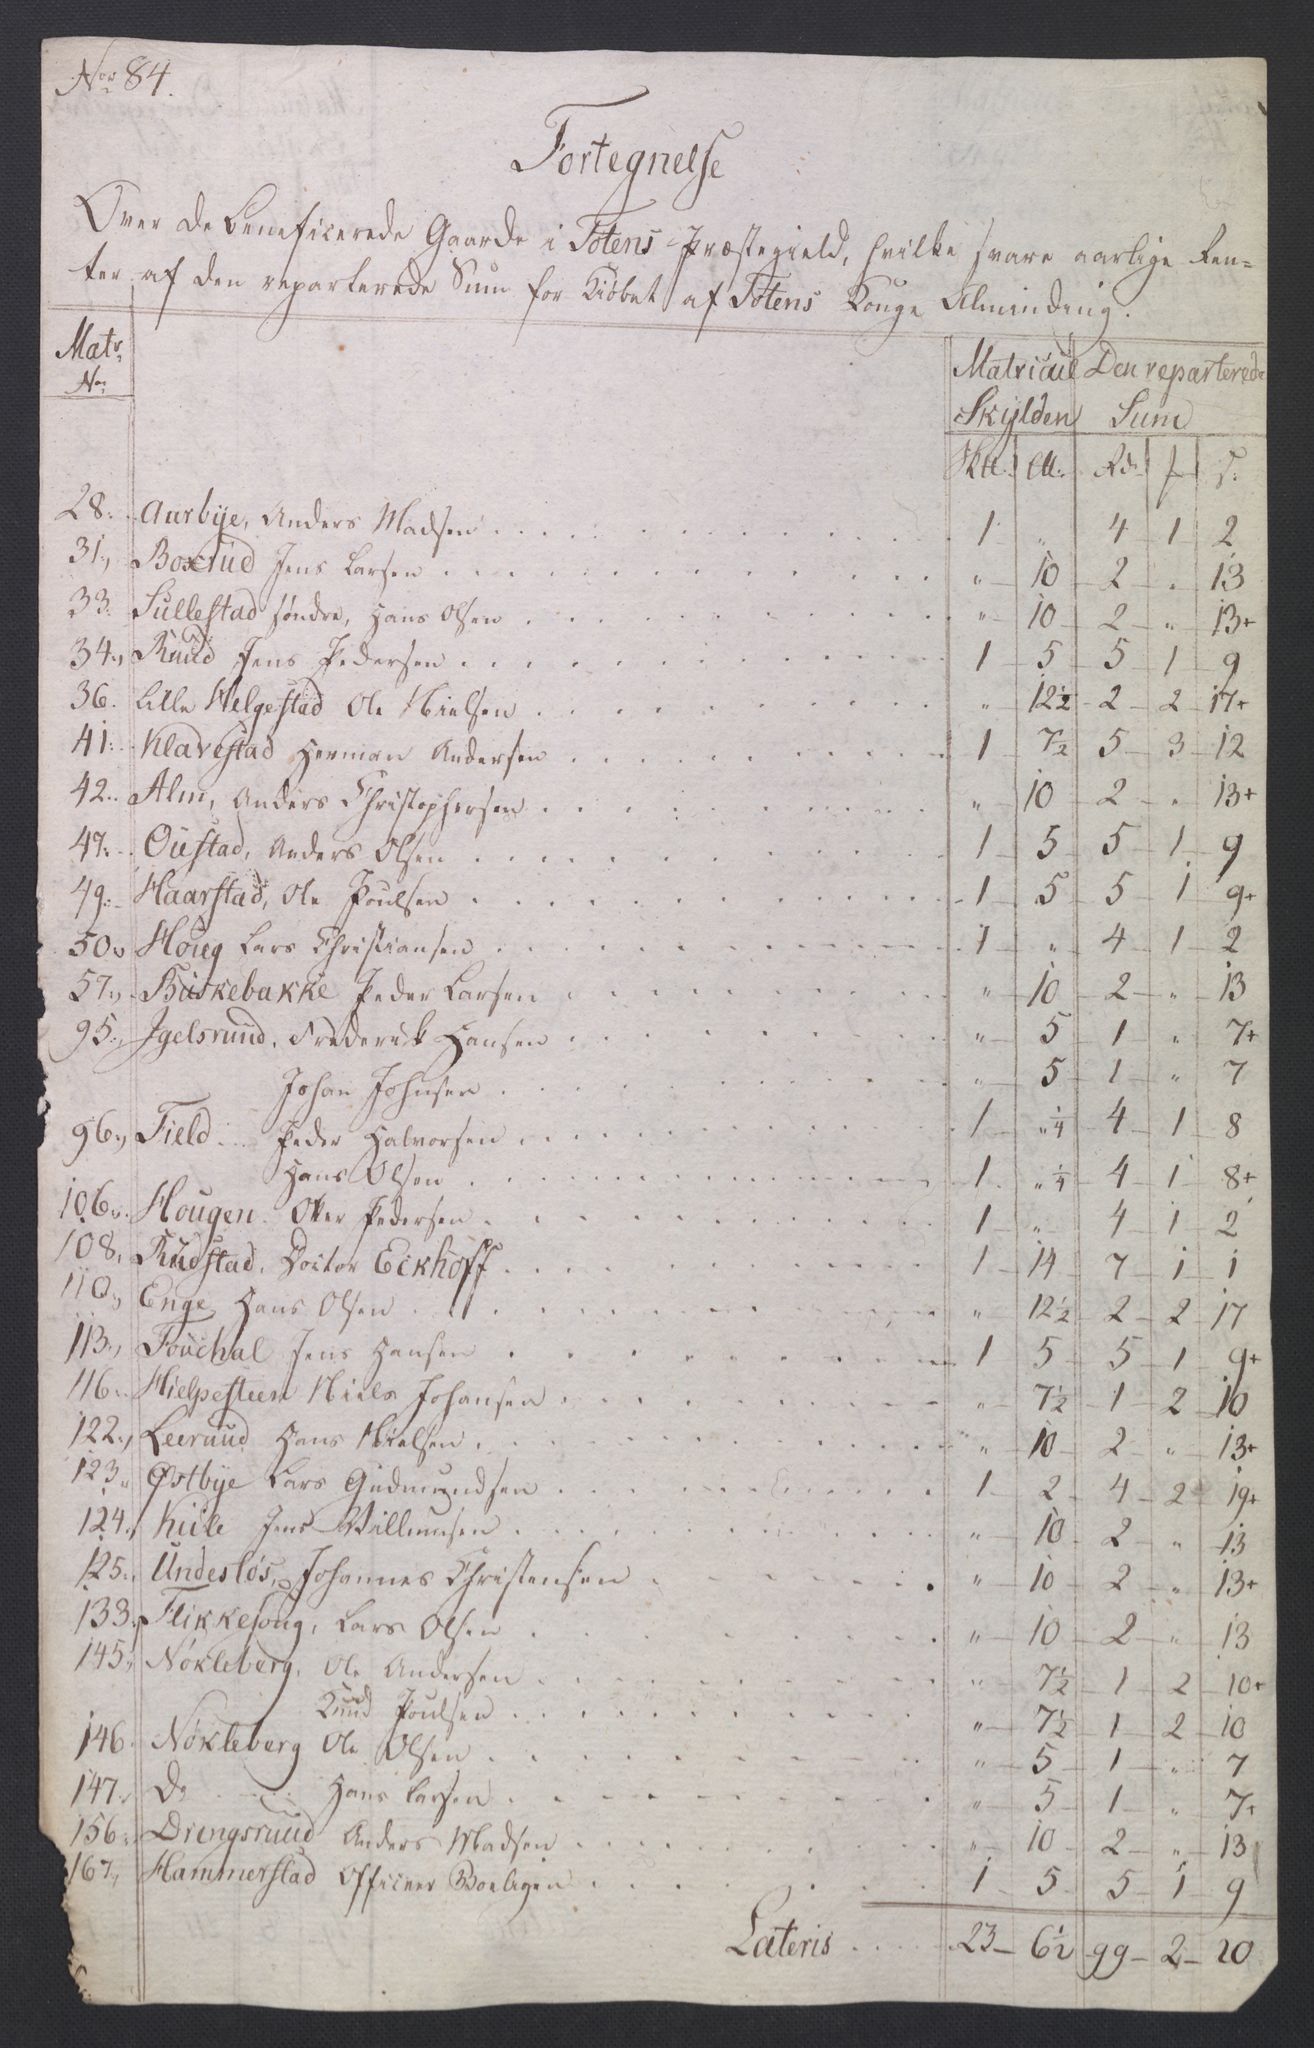 No 84.
Fortegnelse
Over de beneficerede Gaarde i Totens Præstegield, hvilke svare aarlige Ren=
ter af den reparterede Sum for Kiøbet af Totens Konge Alminding.
Matr: No:
Matricul Skylden
Den reparterede Sum
Skll. Rd.
28. Aurbye, Anders Madsen 1 " 4 1 2
31. Boxrud Jens Larsen " 10 2 " 13
33. Sullestad søndre, Hans Olsen " 10 2 " 13+
34. Ruud Jens Pedersen 1 5 5 1 9
36. Lille Helgestad Ole Nielsen " 12½ 2 2 17+
41. Klavestad Herman Andersen 1 7½ 5 3 12
42. Alm, Anders Christophersen " 10 2 " 13+
47. Oustad, Anders Olsen 1 5 5 1 9
49. Haarstad, Ole Poulsen 1 5 5 1 9+
50. Houg Lars Christiansen 1 " 4 1 2
57. Biskebakke Peder Larsen " 10 2 " 13
95. Igelsruud. Frederick Hansen " 5 1 " 7+
Johan Johnsen " 5 1 " 7
96. Field Peder Halvorsen 1 "¼ 4 1 8
Hans Olsen 1 "¼ 4 1 8+
106. Hougen. Peder Pedersen 1 " 4 1 2
108. Rudstad. Doctor Eckhoff 1 14 7 1 1
110. Enge, Hans Olsen " 12½ 2 2 17
113. Fouchal Jens Hansen 1 5 5 1 9+
116. Hielpesteen Niels Johansen " 7½ 1 2 10
122. Leeruud Hans Nielsen " 10 2 " 13+
123. Østbye Lars Gudmundsen 1 2 4 2 19+
124. Kiile Jens Willumsen " 10 2 " 13
125. Undesløs, Johannes Christensen " 10 2 " 13+
133. Flikkesoug, Lars Olsen " 10 2 " 13
145. Nøkleberg, Ole Andersen " 7½ 1 2 10+
Knud Poulsen " 7½ 1 2 10
146. Nøkleberg Ole Olsen " 5 1 " 7
147. Do Hans Larsen " 5 1 " 7+
156. Drengsruud Anders Madsen " 10 2 " 13
167. Hammerstad Officeer Boeligen 1 5 5 1 9
Lateris 23 6½ 99 2 20